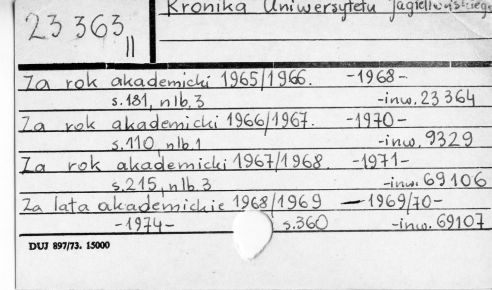 23 363 II
Kronika Uniwersytetu Jagiellońskiego
Za rok akademicki 1965/1966. -1968-
s.181, nlb.3 -inw. 23 364
Za rok akademicki 1966/1967. -1970-
s.110, nlb.1 -inw. 9329
Za rok akademicki 1967/1968. -1971-
s.215, nlb.3 -inw. 69106
Za lata akademickie 1968/1969 — 1969/70-
-1974- s.360 -inw. 69107
DUJ 897/73. 15000